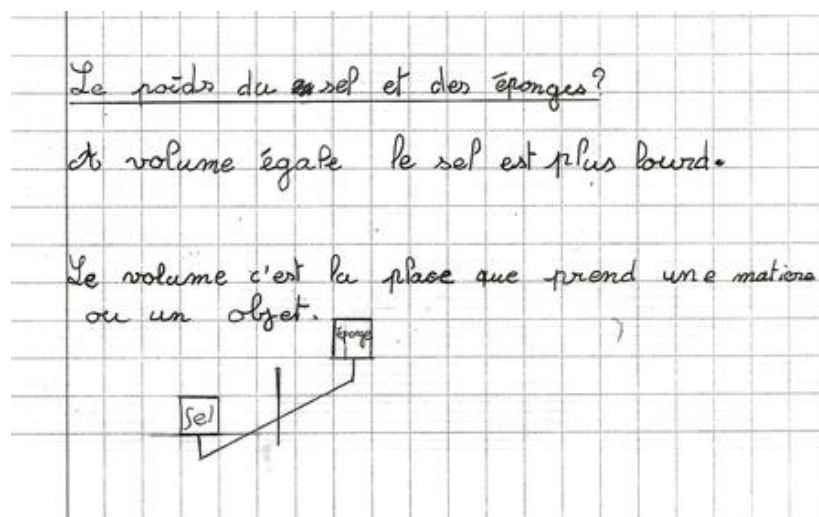 Le poids du sel et des éponges?
A volume égale le sel est plus lourd.
Le volume c'est la place que prend une matière
ou un objet.
éponge
Sel